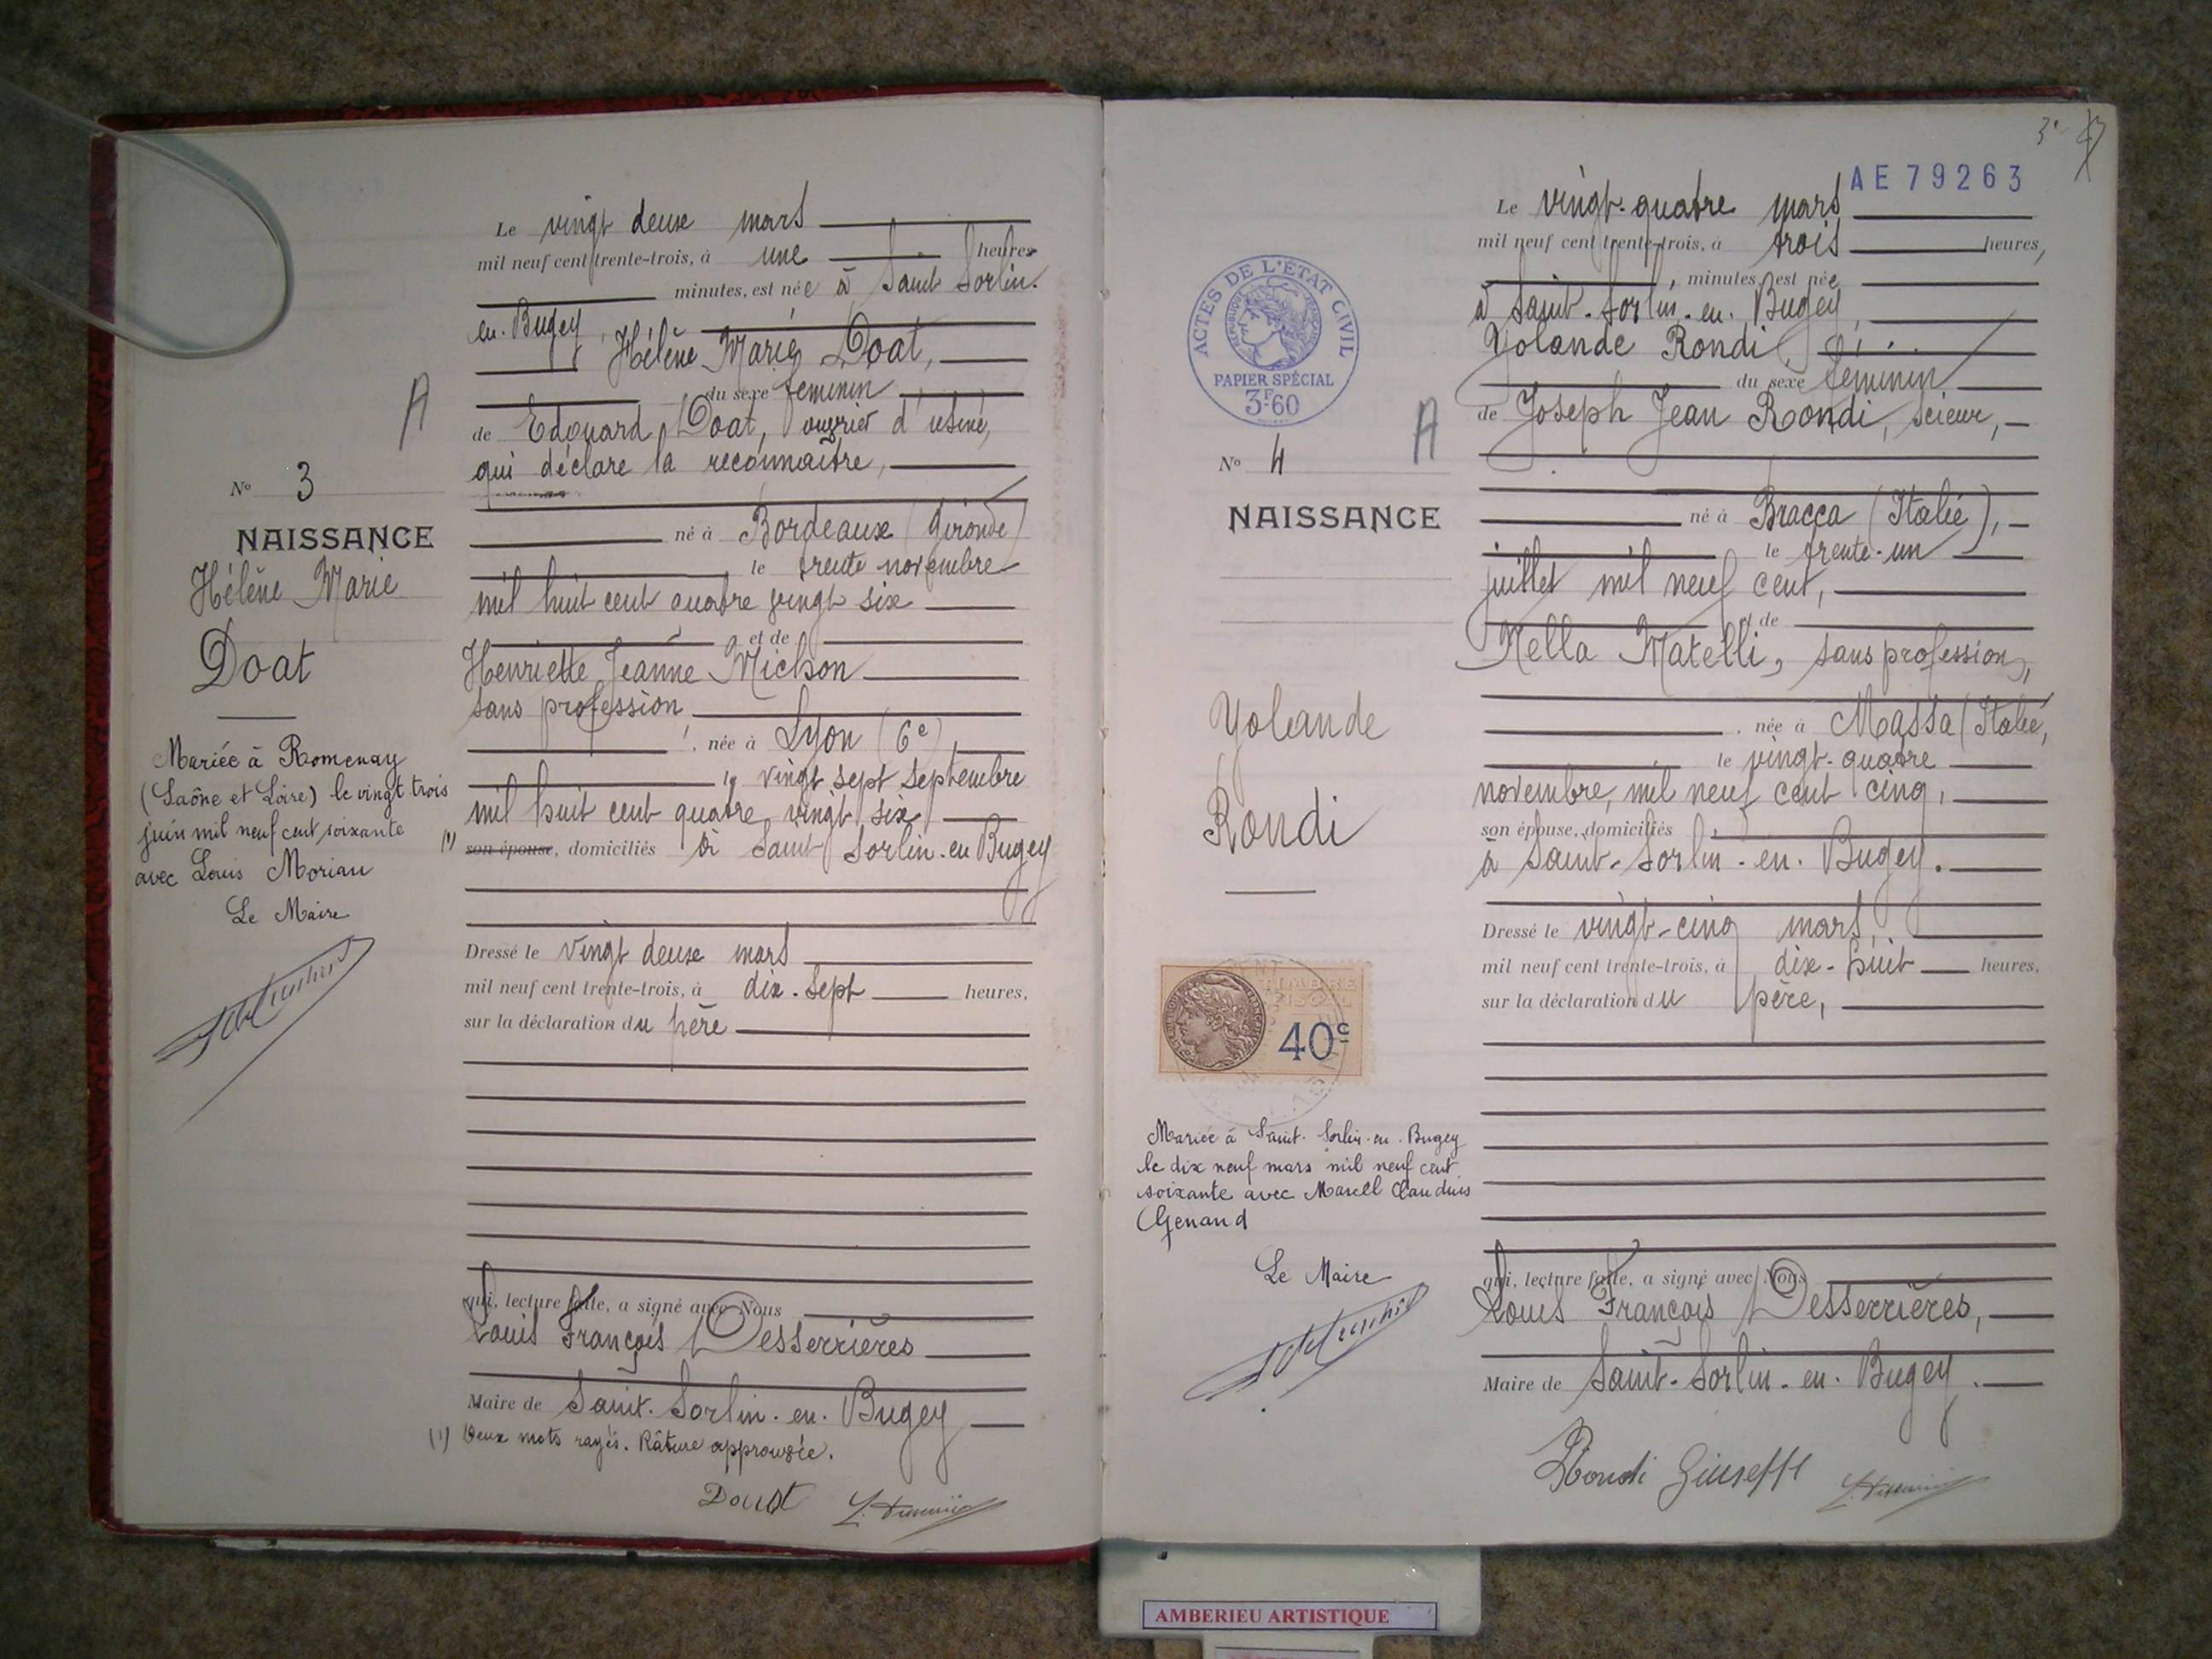 Le vingt deux mars
mil neuf cent trente-trois, à une heures
minutes, est née à Saint Sorlin.
en. Bugey,
Hélène Marie Doat,
du sexe féminin
de Edouard Doat, ouvrier d'usine,
qui déclare la reconnaître,
né à Bordeaux (Gironde)
le trente novembre
mil huit cent quatre vingt six
et de
Henriette Jeanne Michon
sans profession
, née à Lyon (6e)
le vingt sept septembre
mil huit cent quatre vingt six
(1) son épouse, domiciliés à Saint Sorlin-en Bugey
Dressé le vingt deux mars
mil neuf cent trente-trois, à dix-sept heures,
sur la déclaration du père
qui, lecture faite, a signé avec Nous
Louis François Desserrières
Maire de Saint-Sorlin-en-Bugey
(1) Deux mots rayés. Râture approuvée.
Doat
A
No 3
NAISSANCE
Hélène Marie
Doat
Mariée à Romenay
(Saône et Loire) le vingt trois
juin mil neuf cent soixante
avec Louis Morian
Le Maire
3
AE 79263
Le vingt-quatre mars
mil neuf cent trente-trois, à trois heures,
, minutes, est née
à Saint-Sorlin-en-Bugey,
Yolande Rondi,
du sexe féminin
de Joseph Jean Rondi, scieur,
né à Bracca (Italie),
le trente-un
juillet mil neuf cent,
et de
Nella Matelli, sans profession,
, née à Massa (Italie,
le vingt-quatre
novembre, mil neuf cent cinq,
son épouse, domiciliés
à Saint-Sorlin-en-Bugey.
Dressé le vingt-cinq mars
mil neuf cent trente-trois, à dix-huit heures,
sur la déclaration du père,
qui, lecture faite, a signé avec Nous
Louis François Desserrières,
Maire de Saint-Sorlin-en-Bugey.
Rondi Giuseppe
ACTES DE L'ÉTAT CIVIL
RÉPUBLIQUE FRANÇAISE
PAPIER SPÉCIAL
3F60
A
No 4
NAISSANCE
Yolande
Rondi
TIMBRE
FISCAL
40c
Mariée à Saint-Sorlin-en-Bugey
le dix neuf mars mil neuf cent
soixante avec Marcel Claudius
Genand
Le Maire
AMBERIEU ARTISTIQUE